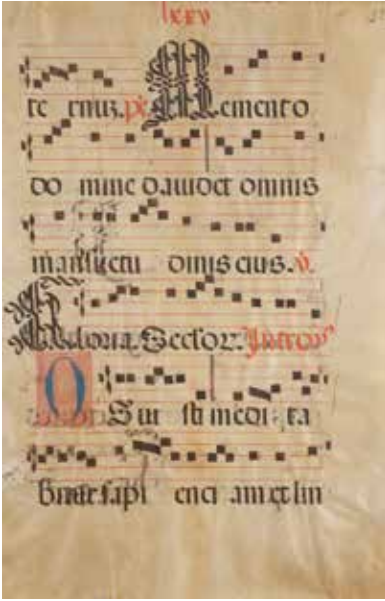 lxxv
te rnuz. ps. Memento
do mine dauidet omnis
mansuetu dinis eius. v.
Gloria. Seclor. Introy
OS Jui sti medi ta
bitur sapi enci am et lin